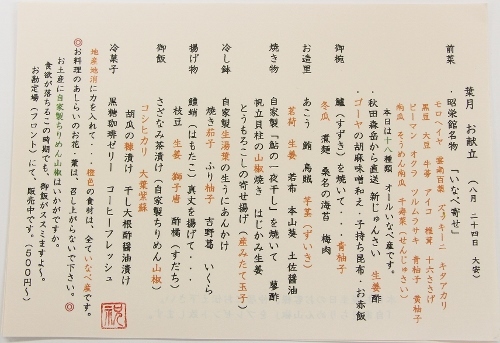 葉月 お献立 (八月 二十四日 大安)
前菜 ・昭栄館名物 『いなべ寄せ』
モロヘイヤ 雲南百薬 ズッキーニ キタアカリ
黒豆 大豆 牛蒡 アイコ 椎茸 十六ささげ
ピーマン オクラ ツルムラサキ 青柚子 黄柚子
南瓜 そうめん南瓜 千寿菜(せんじゅさい)
本日は十八種類 オールいなべ産です。
・秋田森岳から直送 新じゅんさい 生姜酢
・ゴーヤの胡麻味噌和え・子持ち昆布・お赤飯
御椀 鱸(すずき)を焼いて・・・青柚子
冬瓜 煮麺 桑名の海苔 梅肉
お造里 あこう 鮪 烏賊 芋茎(ずいき)
茗荷 生姜 若布 本山葵 土佐醤油
焼き物 自家製『鮎の一夜干し』を焼いて 蓼酢
帆立貝柱の山椒焼き はじかみ生姜
とうもろこしの寄せ揚げ(産みたて玉子)
冷し鉢 自家製生湯葉の生うにあんかけ
焼き茄子 ふり柚子 吉野葛 いくら
揚げ物 鱧端(はもたこ)真丈を揚げて・・・
枝豆 生姜 獅子唐 酢橘(すだち)
御飯 さざなみ茶漬け(自家製ちりめん山椒)
コシヒカリ 大葉紫蘇
胡瓜の糠漬け 干し大根酢醤油漬け
冷菓子 黒糖珈琲ゼリー コーヒーフレッシュ
地産地消に力を入れて・・橙色の食材は、全ていなべ産です。
◎お料理のあしらいのお花・葉は、召し上がらないで下さい。◎
お土産に自家製ちりめん山椒はいかがですか。
食欲が落ちるこの時期でも、御飯がススミますよ～。
お勘定場(フロント)にて、販売中です。(500円～)